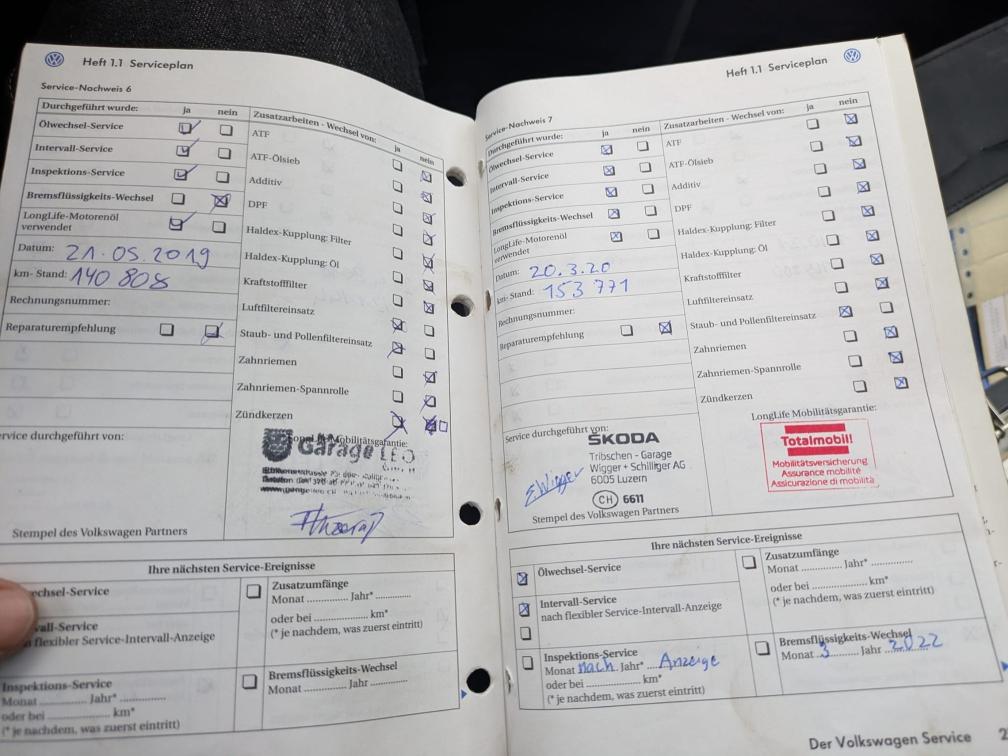 Heft 1.1 Serviceplan
Service-Nachweis 6
Durchgeführt wurde: ja nein
Ölwechsel-Service
Intervall-Service
Inspektions-Service
Bremsflüssigkeits-Wechsel
LongLife-Motorenöl
verwendet
Datum: 21.05.2019
km- Stand: 140 808
Rechnungsnummer:
Reparaturempfehlung
Zusatzarbeiten - Wechsel von: ja nein
ATF
ATF-Ölsieb
Additiv
DPF
Haldex-Kupplung: Filter
Haldex-Kupplung: Öl
Kraftstofffilter
Luftfiltereinsatz
Staub- und Pollenfiltereinsatz
Zahnriemen
Zahnriemen-Spannrolle
Zündkerzen
Mobilitätsgarantie:
Garage LEO
ervice durchgeführt von:
Stempel des Volkswagen Partners
Ihre nächsten Service-Ereignisse
echsel-Service
vall-Service
flexibler Service-Intervall-Anzeige
Inspektions-Service
Monat Jahr*
oder bei km*
(* je nachdem, was zuerst eintritt)
Zusatzumfänge
Monat Jahr*
oder bei km*
(* je nachdem, was zuerst eintritt)
Bremsflüssigkeits-Wechsel
Monat Jahr
Heft 1.1 Serviceplan
Service-Nachweis 7
Durchgeführt wurde: ja nein
Ölwechsel-Service
Intervall-Service
Inspektions-Service
Bremsflüssigkeits-Wechsel
LongLife-Motorenöl
verwendet
Datum: 20.3.20
km- Stand: 153 771
Rechnungsnummer:
Reparaturempfehlung
Zusatzarbeiten - Wechsel von: ja nein
ATF
ATF-Ölsieb
Additiv
DPF
Haldex-Kupplung: Filter
Haldex-Kupplung: Öl
Kraftstofffilter
Luftfiltereinsatz
Staub- und Pollenfiltereinsatz
Zahnriemen
Zahnriemen-Spannrolle
Zündkerzen
LongLife Mobilitätsgarantie:
Totalmobil!
Mobilitätsversicherung
Assurance mobilité
Assicurazione di mobilità
Service durchgeführt von:
ŠKODA
Tribschen - Garage
Wigger + Schilliger AG
6005 Luzern
CH 6611
E Wigger
Stempel des Volkswagen Partners
Ihre nächsten Service-Ereignisse
Ölwechsel-Service
Intervall-Service
nach flexibler Service-Intervall-Anzeige
Inspektions-Service
Monat nach Jahr* Anzeige
oder bei km*
(* je nachdem, was zuerst eintritt)
Zusatzumfänge
Monat Jahr*
oder bei km*
(* je nachdem, was zuerst eintritt)
Bremsflüssigkeits-Wechsel
Monat 3 Jahr 2022
Der Volkswagen Service